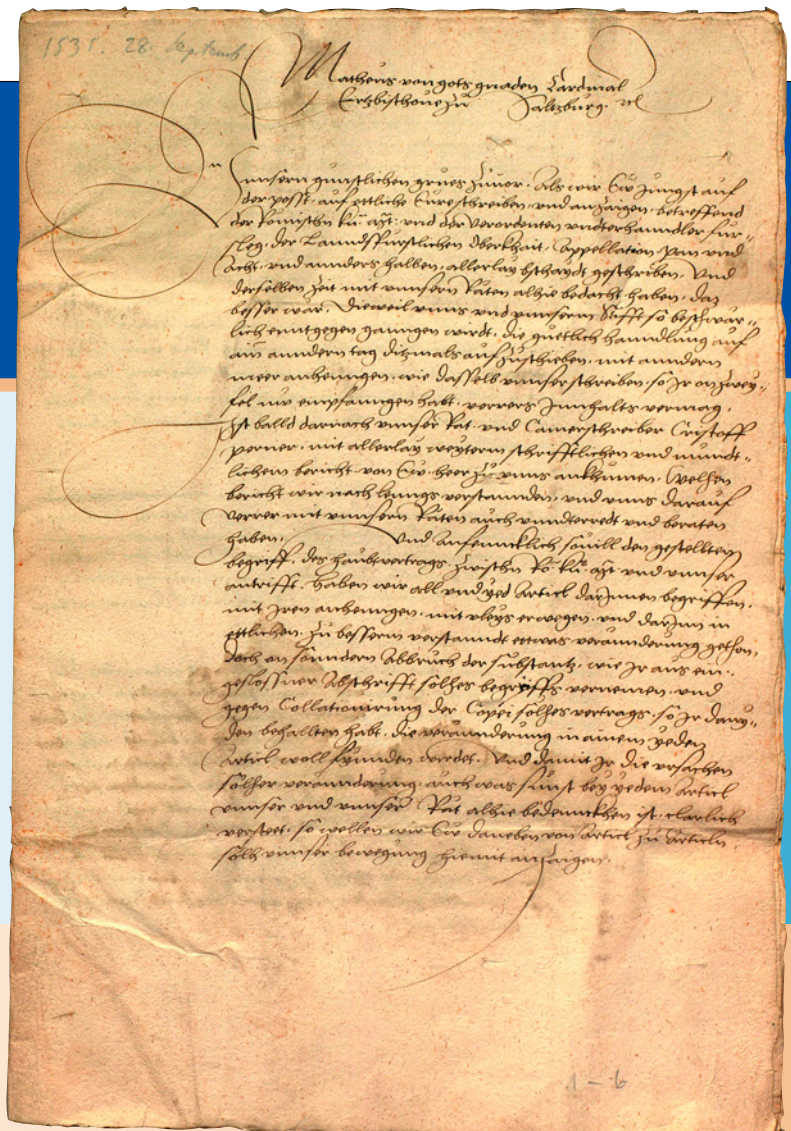 1535. 28. Septemb
Matheus von gots gnaden Cardinal
Ertzbischove zu Saltzburg. etc
Unnsern gunstlichen grues zuvor. Als wir Ew jungst auf
der posst. auf ettliche Eure schreiben. und anzaigen. betreffend
der Romischn ku: mt: und der verordenten underhanndler fur-
sleg. der Lanndsfurstlichen Oberkhait. Appellation. pan und
Acht. und annders halben. allerlay geschriben. Und
derselben Zeit mit unnsern Räten alhie bedacht haben. daz
besser wär. Dieweil unns und unnserm Stifft so beschwär-
lich enntgegen ganngen wirdt. die guetlich hanndlung auf
ain anndern tag ditzmals aufzuschieben. mit anndern
meer anhenngen. wie dasselb unnser schreiben. so Ir on zwey-
fel nu empfanngen habt. verrers Innhalts vermag.
Ist balld darnach unnser Rat. und Camerschreiber Cristoff
perner. mit allerlay weyterm schrifftlichen und mundt-
lichem bericht. von Ew. heer zu unns ankhumen. Welhen
bericht wir nach lenngs verstannden. und unns darauf
verrer mit unnsern Räten auch unnderredt und beraten
haben. Und Anfenncklich sovill den gestellten
begriff. des haubtvertrags. zwischn Ro: ku: mt: und unnser
antrifft. Haben wir all und yed Articl darInnen begriffen.
mit Iren anhenngen. mit vleys erwegen. und darInn in
ettlichen. zu besserm verstanndt ettwas veraennderung gethon.
doch on sonndern Abbruch der substantz. wie Ir aus ein-
geslossner Abschrifft solhes begriffs vernemen. und
gegen Collationirung der Copei solhes vertrags. so Ir
den behallten habt. die veraennderung in ainem yeden
Articl woll fynnden werdet. Und damit Ir die ursachen
solher veraennderung. auch was sunst bey yedem Articl
unnser und unnser Rät alhie bedennckhen ist. clarlich
versteet. so wellen wir Ew daneben von Articl zu Articln
solh unnser bewegung hiemit anzaigen.
1-6